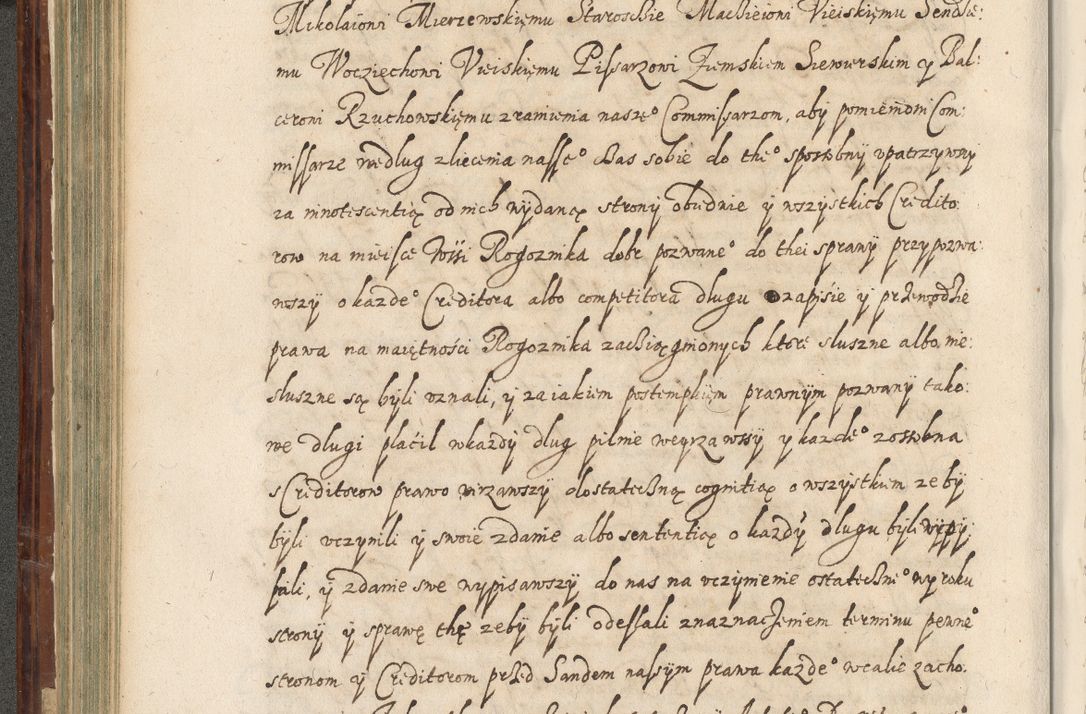 Mikolaiowi Mierzewskięmu Staroscie Machieiowi Vieiskięmu Sendzie:
mu Woczięchowi Vieiskięmu Pissarzowi Ziemskiem Siewierskim y Bal:
ceroni Rzuchowskięmu z ramienia nasze° Commissarzom, aby pomienioni Com:
missarze według zliecenia nassze° czas sobie do the° sposobny vpatrzywszy
za innotescentią od nich wydaną strony obudwie y wszystkich Credito
row na mieisce wssi Rogoznika dobr pozwane° do thei sprawy przypozwa:
wszy o kazde° Creditora albo competitora dlugu zapisie y przewodzie
prawa na maiętności Rogoznika zachiągnionych ktore sluszne albo nie:
sluszne są byli vznali, y za iakiem postempkiem prawnym pozwany tako:
we dlugi placil w kazdy dlug pilnie weyrzawssy y kazde° zosobna
s Creditorow prawo wirzawszy dostateczną cognitią o wszystkiem zeby
byli vczynili y swoie zdanie albo sententią o kazdy dlugu byli wypy:
sali, y zdanie swe wypisawszy do nas na vczynienie ostateczne° wyroku
strony y sprawę thę zeby byli odessali z naznaczeniem terminu pewne°
stronom y Creditorom przed Sandem nassym prawa kazde° wcalie zacho: